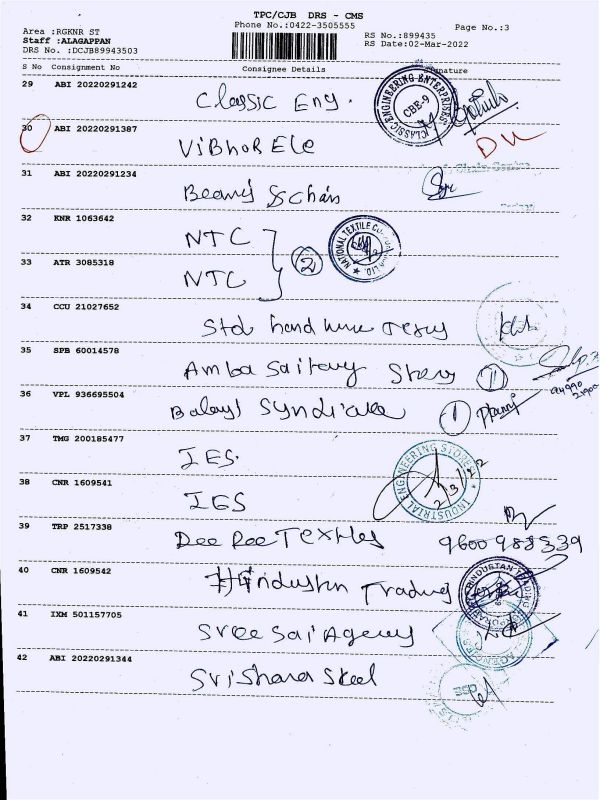 TPC/CJB DRS - CMS
Phone No.:0422-3505555
Page No.:3
Area :RGKNR ST
Staff :ALAGAPPAN
DRS No. :DCJB89943503
RS No.:899435
RS Date:02-Mar-2022
S No Consignment No Consignee Details Signature
29 ABI 20220291242
Classic Eng.
CLASSIC ENGINEERING ENTERPRISES
CBE-9
30 ABI 20220291387
VibhoR Ele
31 ABI 20220291234
32 KNR 1063642
NTC
2
NATIONAL TEXTILE LTD.
33 ATR 3085318
NTC
34 CCU 21027652
Std hardware
35 SPB 60014578
Amba Sanitary Stores 1
36 VPL 936695504
Balaji Syndicate 1
37 TMG 200185477
IES.
INDUSTRIAL ENGINEERING STORES
2/3/22
38 CNR 1609541
IES
39 TRP 2517338
Dee Dee Textiles
9600988339
40 CNR 1609542
Hindustan Trading
HINDUSTAN TRADING
41 IXM 501157705
Sree Sai Agency
AGENCIES
42 ABI 20220291344
Sri Sharda Steel